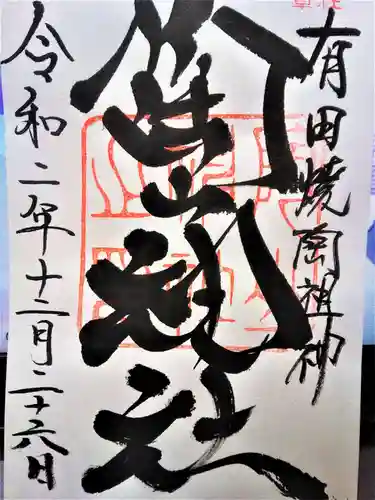 有田焼陶祖神
陶山神社
令和二年十二月二十六日